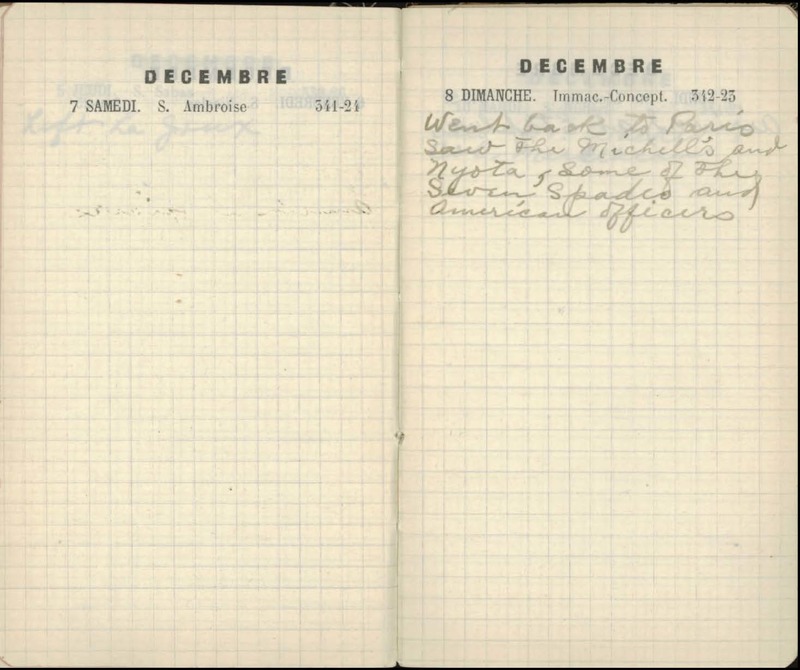 DECEMBRE
7 SAMEDI. S. Ambroise 341-24
Left La Joux
DECEMBRE
8 DIMANCHE. Immac.-Concept. 342-23
Went back to Paris
saw The Michell's and
Nyota, Some of The
Seven Spades and
American officers